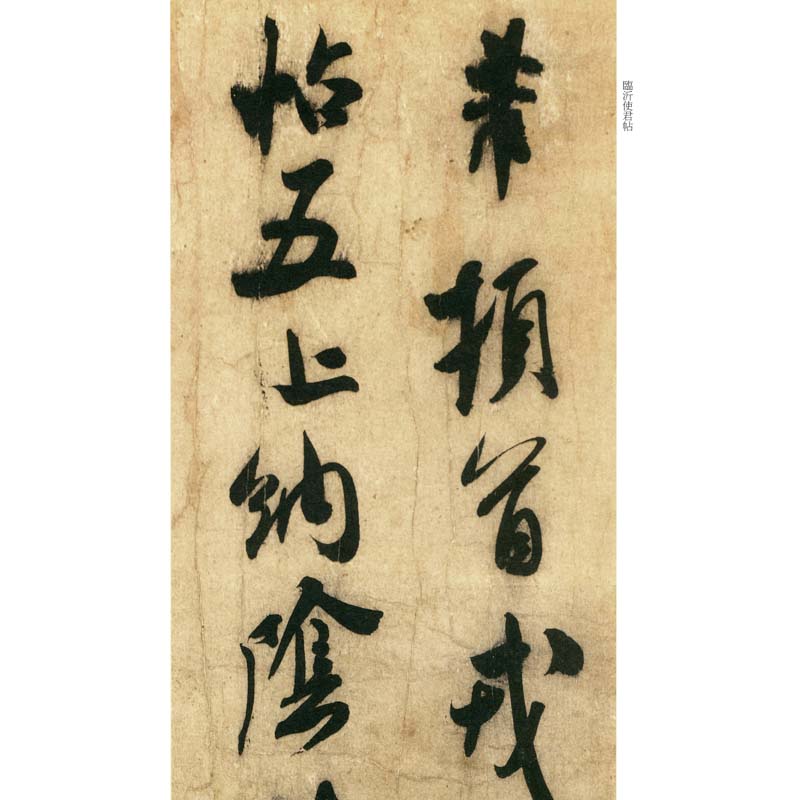 臨沂使君帖
芾頓首戎
帖五上納陰